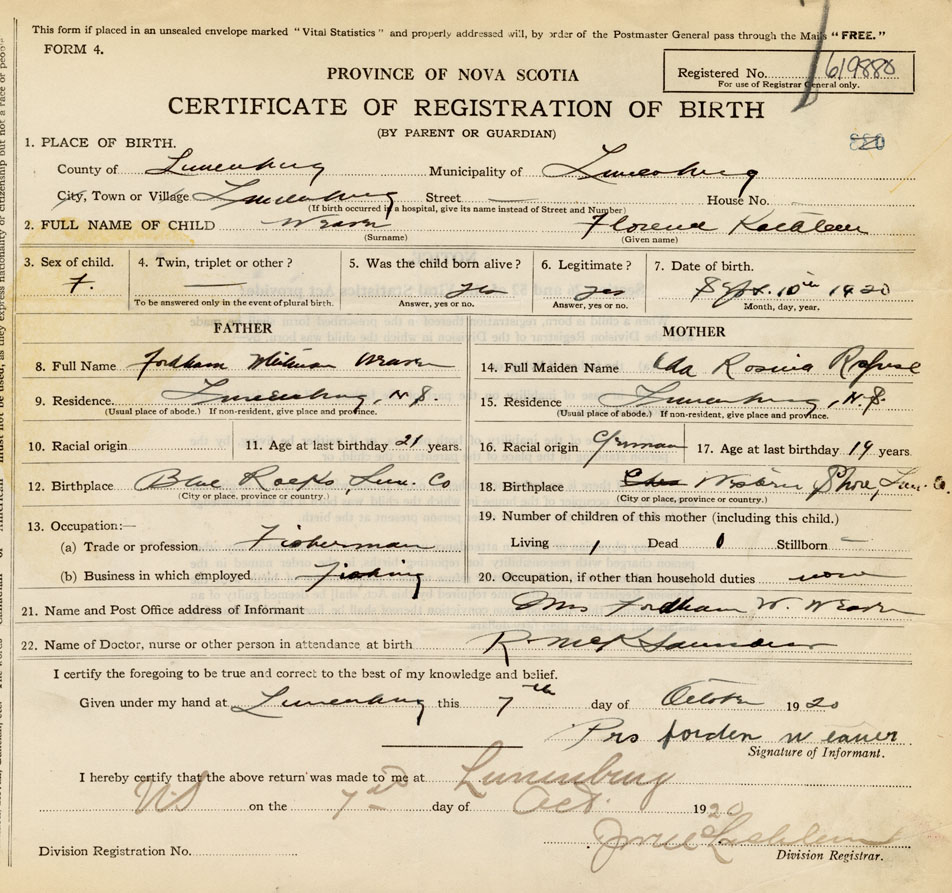 This form if placed in an unsealed envelope marked "Vital Statistics" and properly addressed will, by order of the Postmaster General pass through the Mails "FREE."
FORM 4.
Registered No. 619880
For use of Registrar General only.
PROVINCE OF NOVA SCOTIA
CERTIFICATE OF REGISTRATION OF BIRTH
(BY PARENT OR GUARDIAN)
1. PLACE OF BIRTH.
County of Lunenburg Municipality of Lunenburg
City, Town or Village Lunenburg Street House No.
(If birth occurred in a hospital, give its name instead of Street and Number)
2. FULL NAME OF CHILD Weaver Florence Kathleen
(Surname) (Given name)
3. Sex of child. 4. Twin, triplet or other? 5. Was the child born alive? 6. Legitimate? 7. Date of birth.
F. yes yes Sept. 10th 1920
To be answered only in the event of plural birth. Answer, yes or no. Answer, yes or no. Month, day, year.
FATHER MOTHER
8. Full Name Fordham Weaver 14. Full Maiden Name Ada Rosina Rafuse
9. Residence. Lunenburg, N.S. 15. Residence Lunenburg, N.S.
(Usual place of abode.) If non-resident, give place and province. (Usual place of abode.) If non-resident, give place and province.
10. Racial origin 11. Age at last birthday 21 years. 16. Racial origin German 17. Age at last birthday 19 years.
12. Birthplace Blue Rocks, Lun. Co 18. Birthplace Western Shore, Lun. Co.
(City or place, province or country.) (City or place, province or country.)
13. Occupation:— 19. Number of children of this mother (including this child.)
(a) Trade or profession Fisherman Living 1 Dead 0 Stillborn –
(b) Business in which employed Fishing 20. Occupation, if other than household duties none
21. Name and Post Office address of Informant Mrs Fordham W. Weaver
22. Name of Doctor, nurse or other person in attendance at birth R. McK Saunders
I certify the foregoing to be true and correct to the best of my knowledge and belief.
Given under my hand at Lunenburg this 7th day of October 1920
Mrs forden w eaver
Signature of Informant.
I hereby certify that the above return was made to me at Lunenburg
NS on the 7th day of Oct. 1920
Division Registration No. Division Registrar.